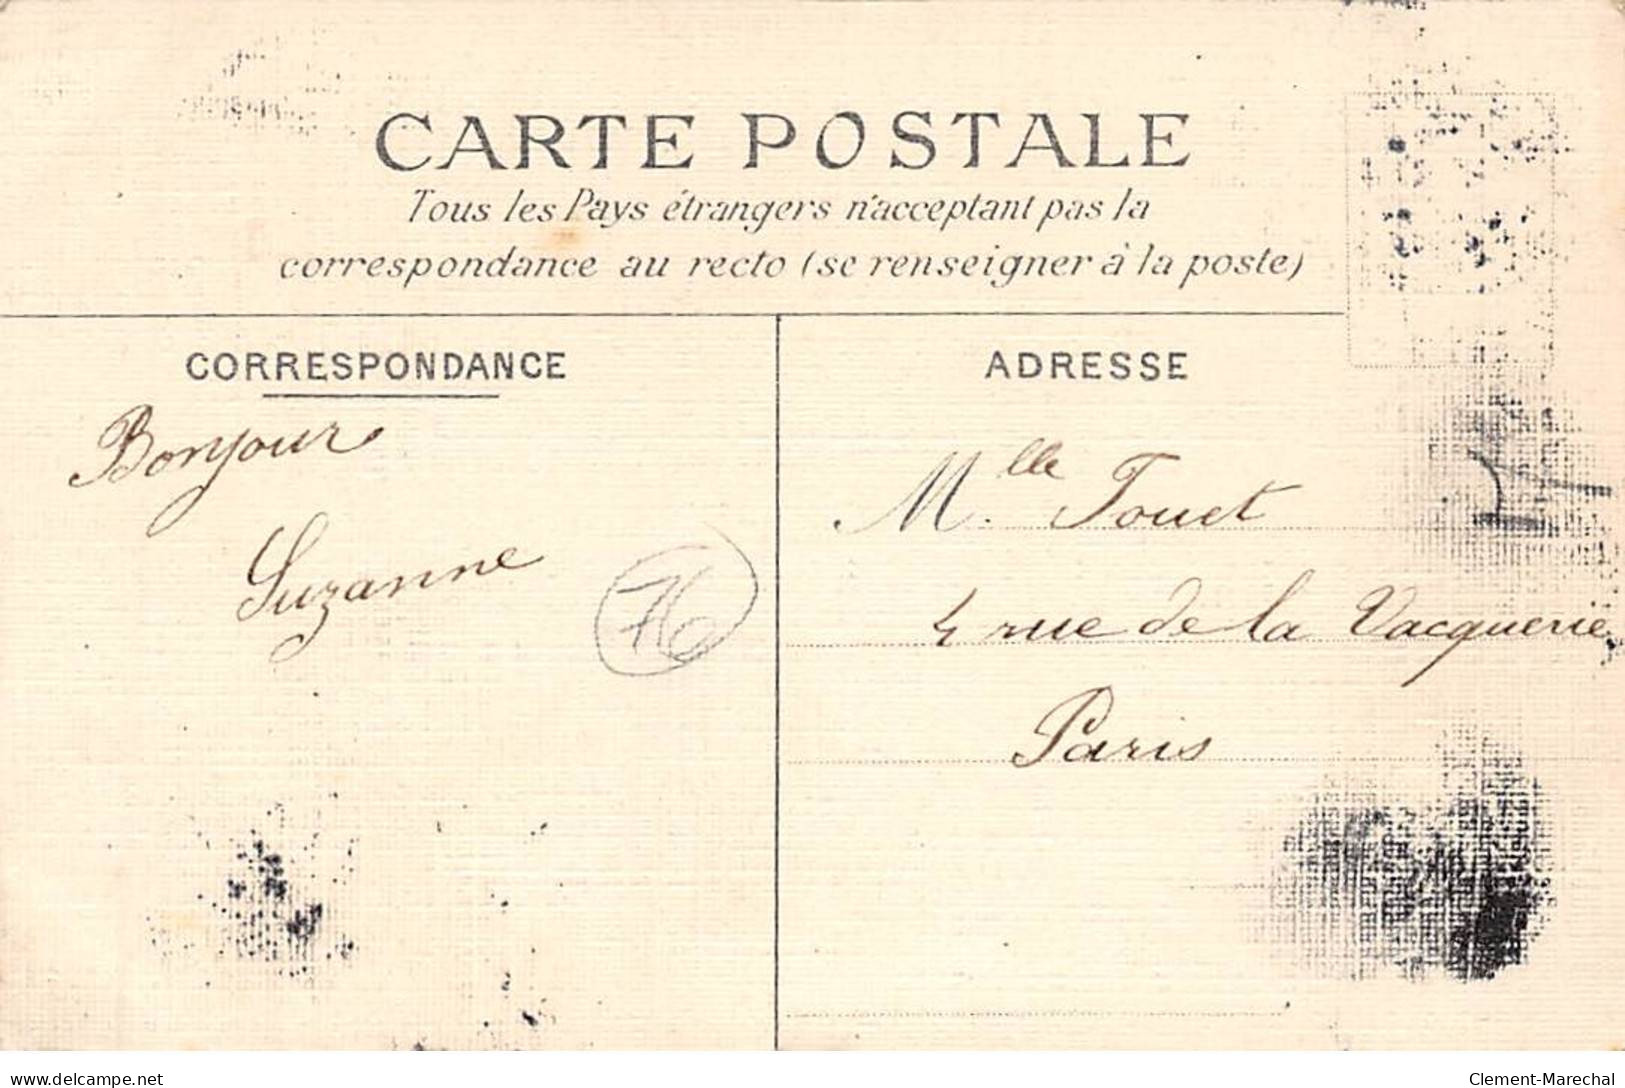 CARTE POSTALE
Tous les Pays étrangers n'acceptant pas la
correspondance au recto (se renseigner à la poste)
CORRESPONDANCE
Bonjour
Suzanne
76
ADRESSE
Mlle Touet
4 rue de la Vacquerie
Paris
delcampe.net
Clement-Marechal